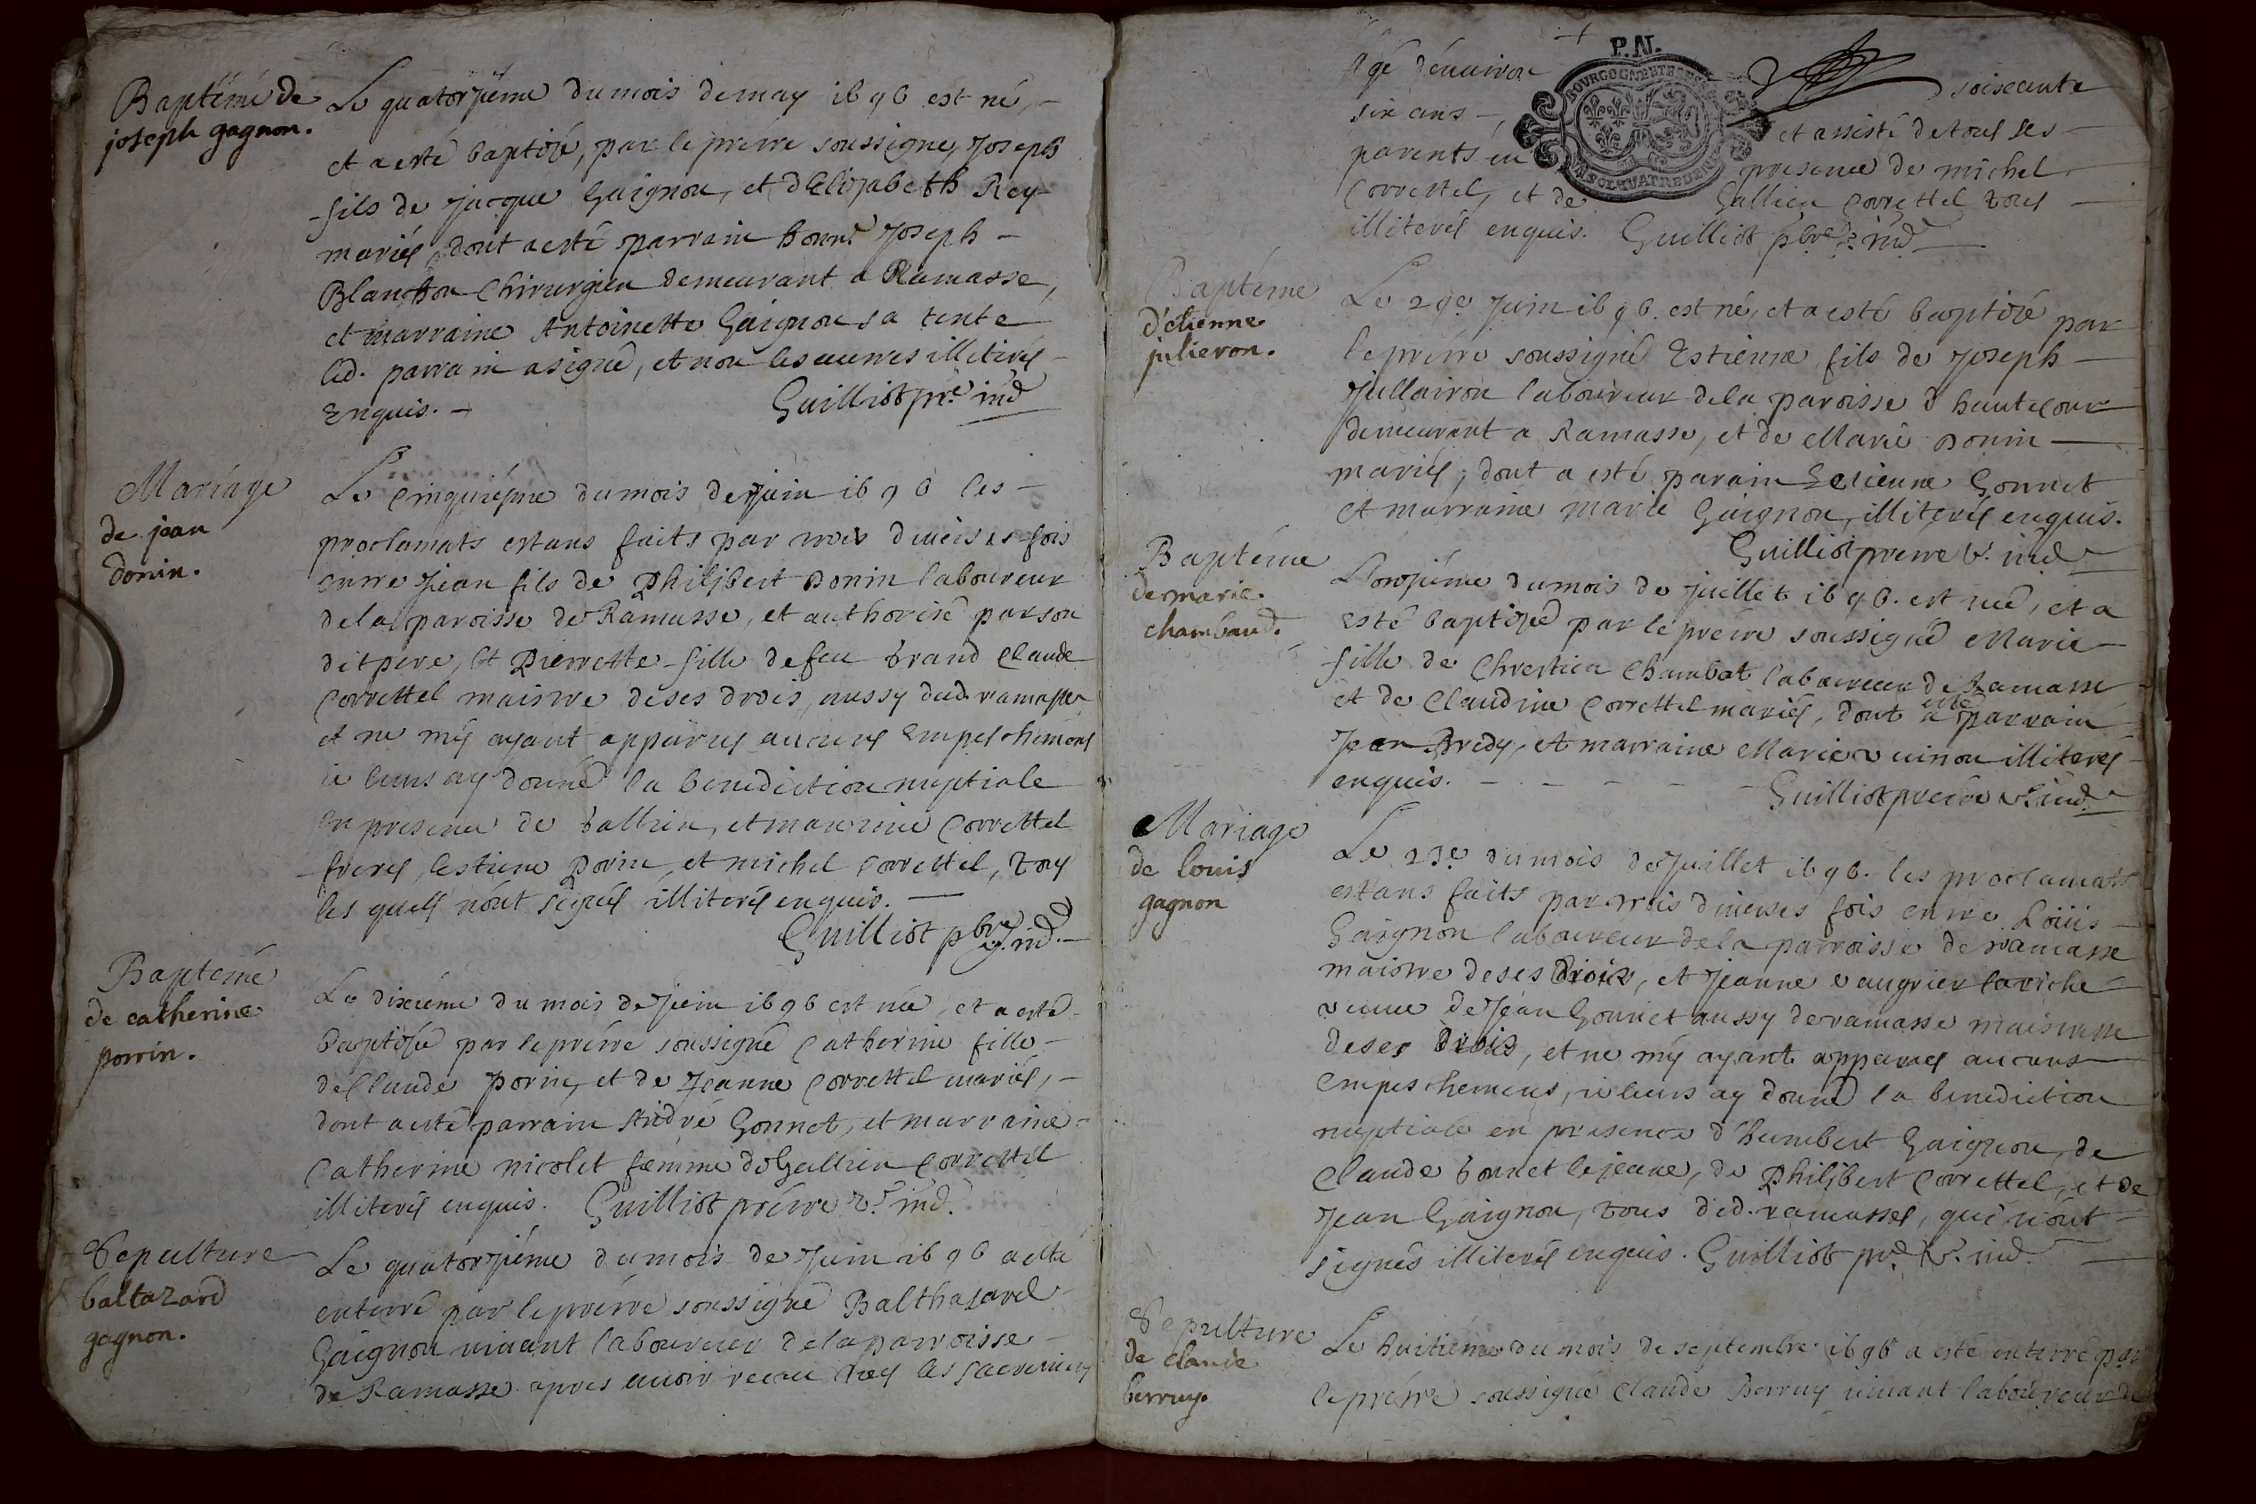 Baptéme de
joseph gagnon.
Le quatorziéme du mois de may 1696 est né, -
et a esté baptizé, par le prêtre soussigné, Joseph
fils de Jacque Gaignon, et d'Elizabeth Rey
mariés dont a esté parrain honn.e Joseph -
Blanchon Chirurgien demeurant a Ramasse,
et marraine Antoinette Gaignon sa tente
led. parrain a signé, et non les autres illiterés -
enquis. - Guilliot pre ind
Mariage
de jean
donin.
Le cinquiéme du mois de Juin 1696 les -
proclamats estans faits par trois diverses fois
entre Jean fils de Philibert Donin laboureur
de la paroisse de Ramasse, et authorisé par son
dit pere, et Pierrette fille de feu grand Claude
Correttel maistre de ses drois, aussy dud. ramasse
et ne m'y ayant apparus aucuns empeschemens
ie leurs ay donné la benediction nuptiale
en presence de Gallien, et Correttel
freres, estiene Dorin et michel Correttel, tous
les quels n'ont signés illiterés enquis. -
Guilliot pbre v. ind. -
Baptemé
de catherine
porrin.
Le dixiéme du mois de Juin 1696 est née, et a esté
baptisée par le prêtre soussigné Catherine fille -
de Claude Porin, et de Jeanne Correttel mariés, -
dont a esté parrain André Gonnet, et marraine -
Catherine nicolet femme de Gallien Correttel
illiterés enquis. Guilliot prétre v. ind.
Sepulture
baltazard
gagnon.
Le quatorziéme du mois de Juin 1696 a esté
enterré par le prétre soussigné Balthasard
Gaignon vivant laboureur de la parroisse -
de Ramasse apres avoir receu tous les sacremens
P.N.
âgé d'environ soixante
six ans -, et assisté de tous ses -
parents en presence de michel
Correttel, et de Gallien Correttel tous -
illiterés enquis. Guilliot pbre v. ind -
Baptéme
d'etienne
julieron.
Le 29e Juin 1696. est né, et a esté baptizé par
le prétre soussigné Estienne fils de Joseph -
Jullairon laboureur de la paroisse d'hautecour
demeurant a Ramasse, et de Marie Donin -
mariés, dont a esté parain Estienne Gonnet
et marraine marie Gaignon, illiterés enquis.
Guilliot pretre v. ind -
Baptéme
de marie
chambaud.
L'onziéme du mois de juillet 1696. est née, et a
esté baptizée par le prétre soussigné Marie -
fille de Chrestien Chambat laboureur de Ramasse
et de Claudine Correttel mariés, dont a esté parrain
Jean Bredy, et marraine Marie illiterés
enquis. - - - - - Guilliot pretre v. ind.
Mariage
de louis
gagnon
Le 23e du mois de Juillet 1696. les proclamats
estans faits par trois diverses fois entre Loüis -
Gaignon laboureur de la parroisse de ramasse
maistre de ses drois, et Jeanne
veuve de Jean Gonnet aussy de ramasse maistresse
de ses drois, et ne m'y ayant apparus aucuns
empeschemens, ie leurs ay donné la benediction
nuptiale en presence d'humbert Gaignon, de
Claude Gonnet le jeune, de Philibert Correttel, et de
Jean Gaignon, tous dud. ramasses, qui n'ont -
signés illiterés enquis. Guilliot pre. v. ind. -
Sepulture
de claude
berruy.
Le huitiéme du mois de septembre 1696 a esté enterré par
le prétre soussigné Claude Berruy vivant laboureur de